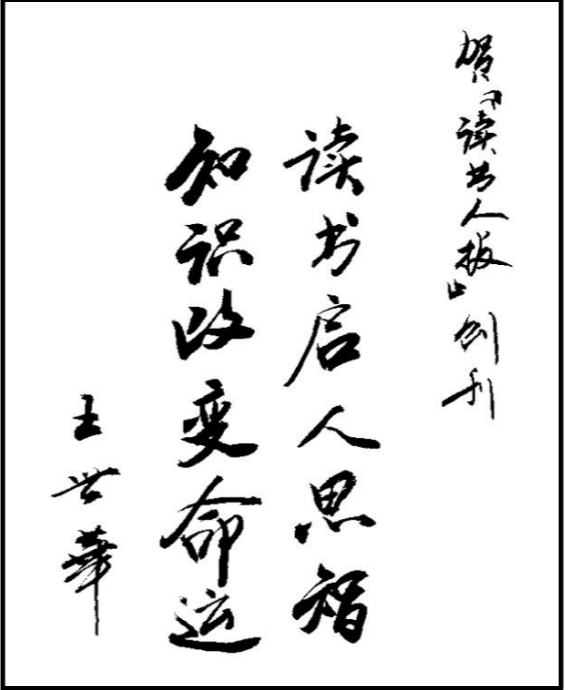 贺『读书人报』创刊
读书启人思智
知识改变命运
王世華